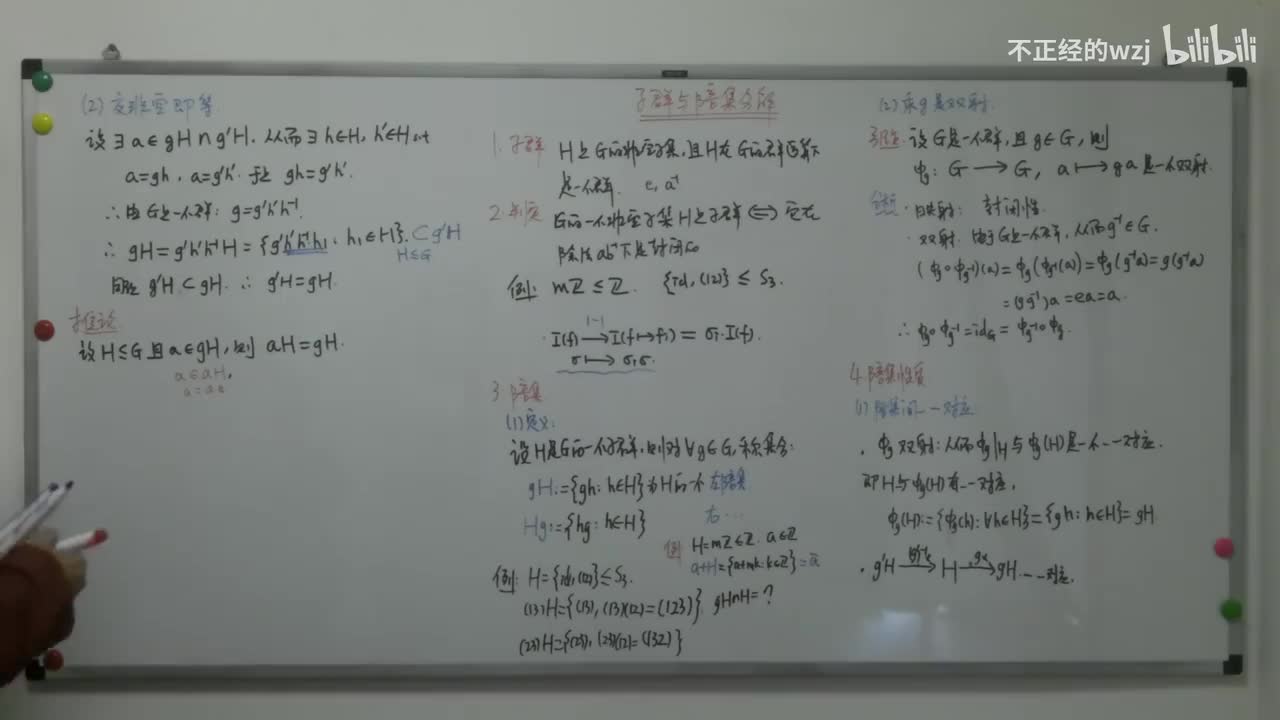 不正经的wzj bilibili
(2) 交非空即等
设∃a∈gH∩g'H. 从而∃h∈H, h'∈H s.t
a=gh, a=g'h'. 于是 gh=g'h'.
∴由G是一个群: g=g'h'h⁻¹.
∴ gH=g'h'h⁻¹H={g'h'h⁻¹h₁: h₁∈H}⊂g'H
H≤G
同理 g'H⊂gH. ∴ g'H=gH.
推论
设H≤G且a∈gH, 则 aH=gH.
a∈aH,
子群与陪集分解
1. 子群 H是G的非空子集,且H在G的群运算下
是一个群. e, a⁻¹
2. 判定 G的一个非空子集H是子群⟺它在
除法ab⁻¹下是封闭的
例: mZ≤Z. {id, (12)}≤S₃.
I(f) 1-1 → I(f↦f₁)=σ₁·I(f).
σ↦σ₁σ.
3. 陪集
(1) 定义:
设H是G的一个子群,则对∀g∈G,称集合:
gH:={gh: h∈H}为H的一个左陪集
Hg:={hg: h∈H} 右…
例 H=mZ≤Z. a∈Z
a+H={a+mk: k∈Z}=ā
例: H={id, (12)}≤S₃.
(13)H={(13), (13)(12)=(123)} gH∩H=?
(23)H={(23), (23)(12)=(132)}
(2) 乘g是双射.
引理. 设G是一个群,且g∈G,则
φg: G→G, a↦ga是一个双射.
·映射: 封闭性.
·双射. 由于G是一个群,从而g⁻¹∈G.
(φg∘φg⁻¹)(a)=φg(φg⁻¹(a))=φg(g⁻¹a)=g(g⁻¹a)
=(gg⁻¹)a=ea=a.
∴φg∘φg⁻¹=idG=φg⁻¹∘φg.
4. 陪集性质
(1) 陪集间一一对应
·φg双射:从而φg|H与φg(H)是一个一一对应.
即H与φg(H)有一一对应.
φg(H):={φg(h): ∀h∈H}={gh: h∈H}=gH.
·g'H→H→gH 一一对应.